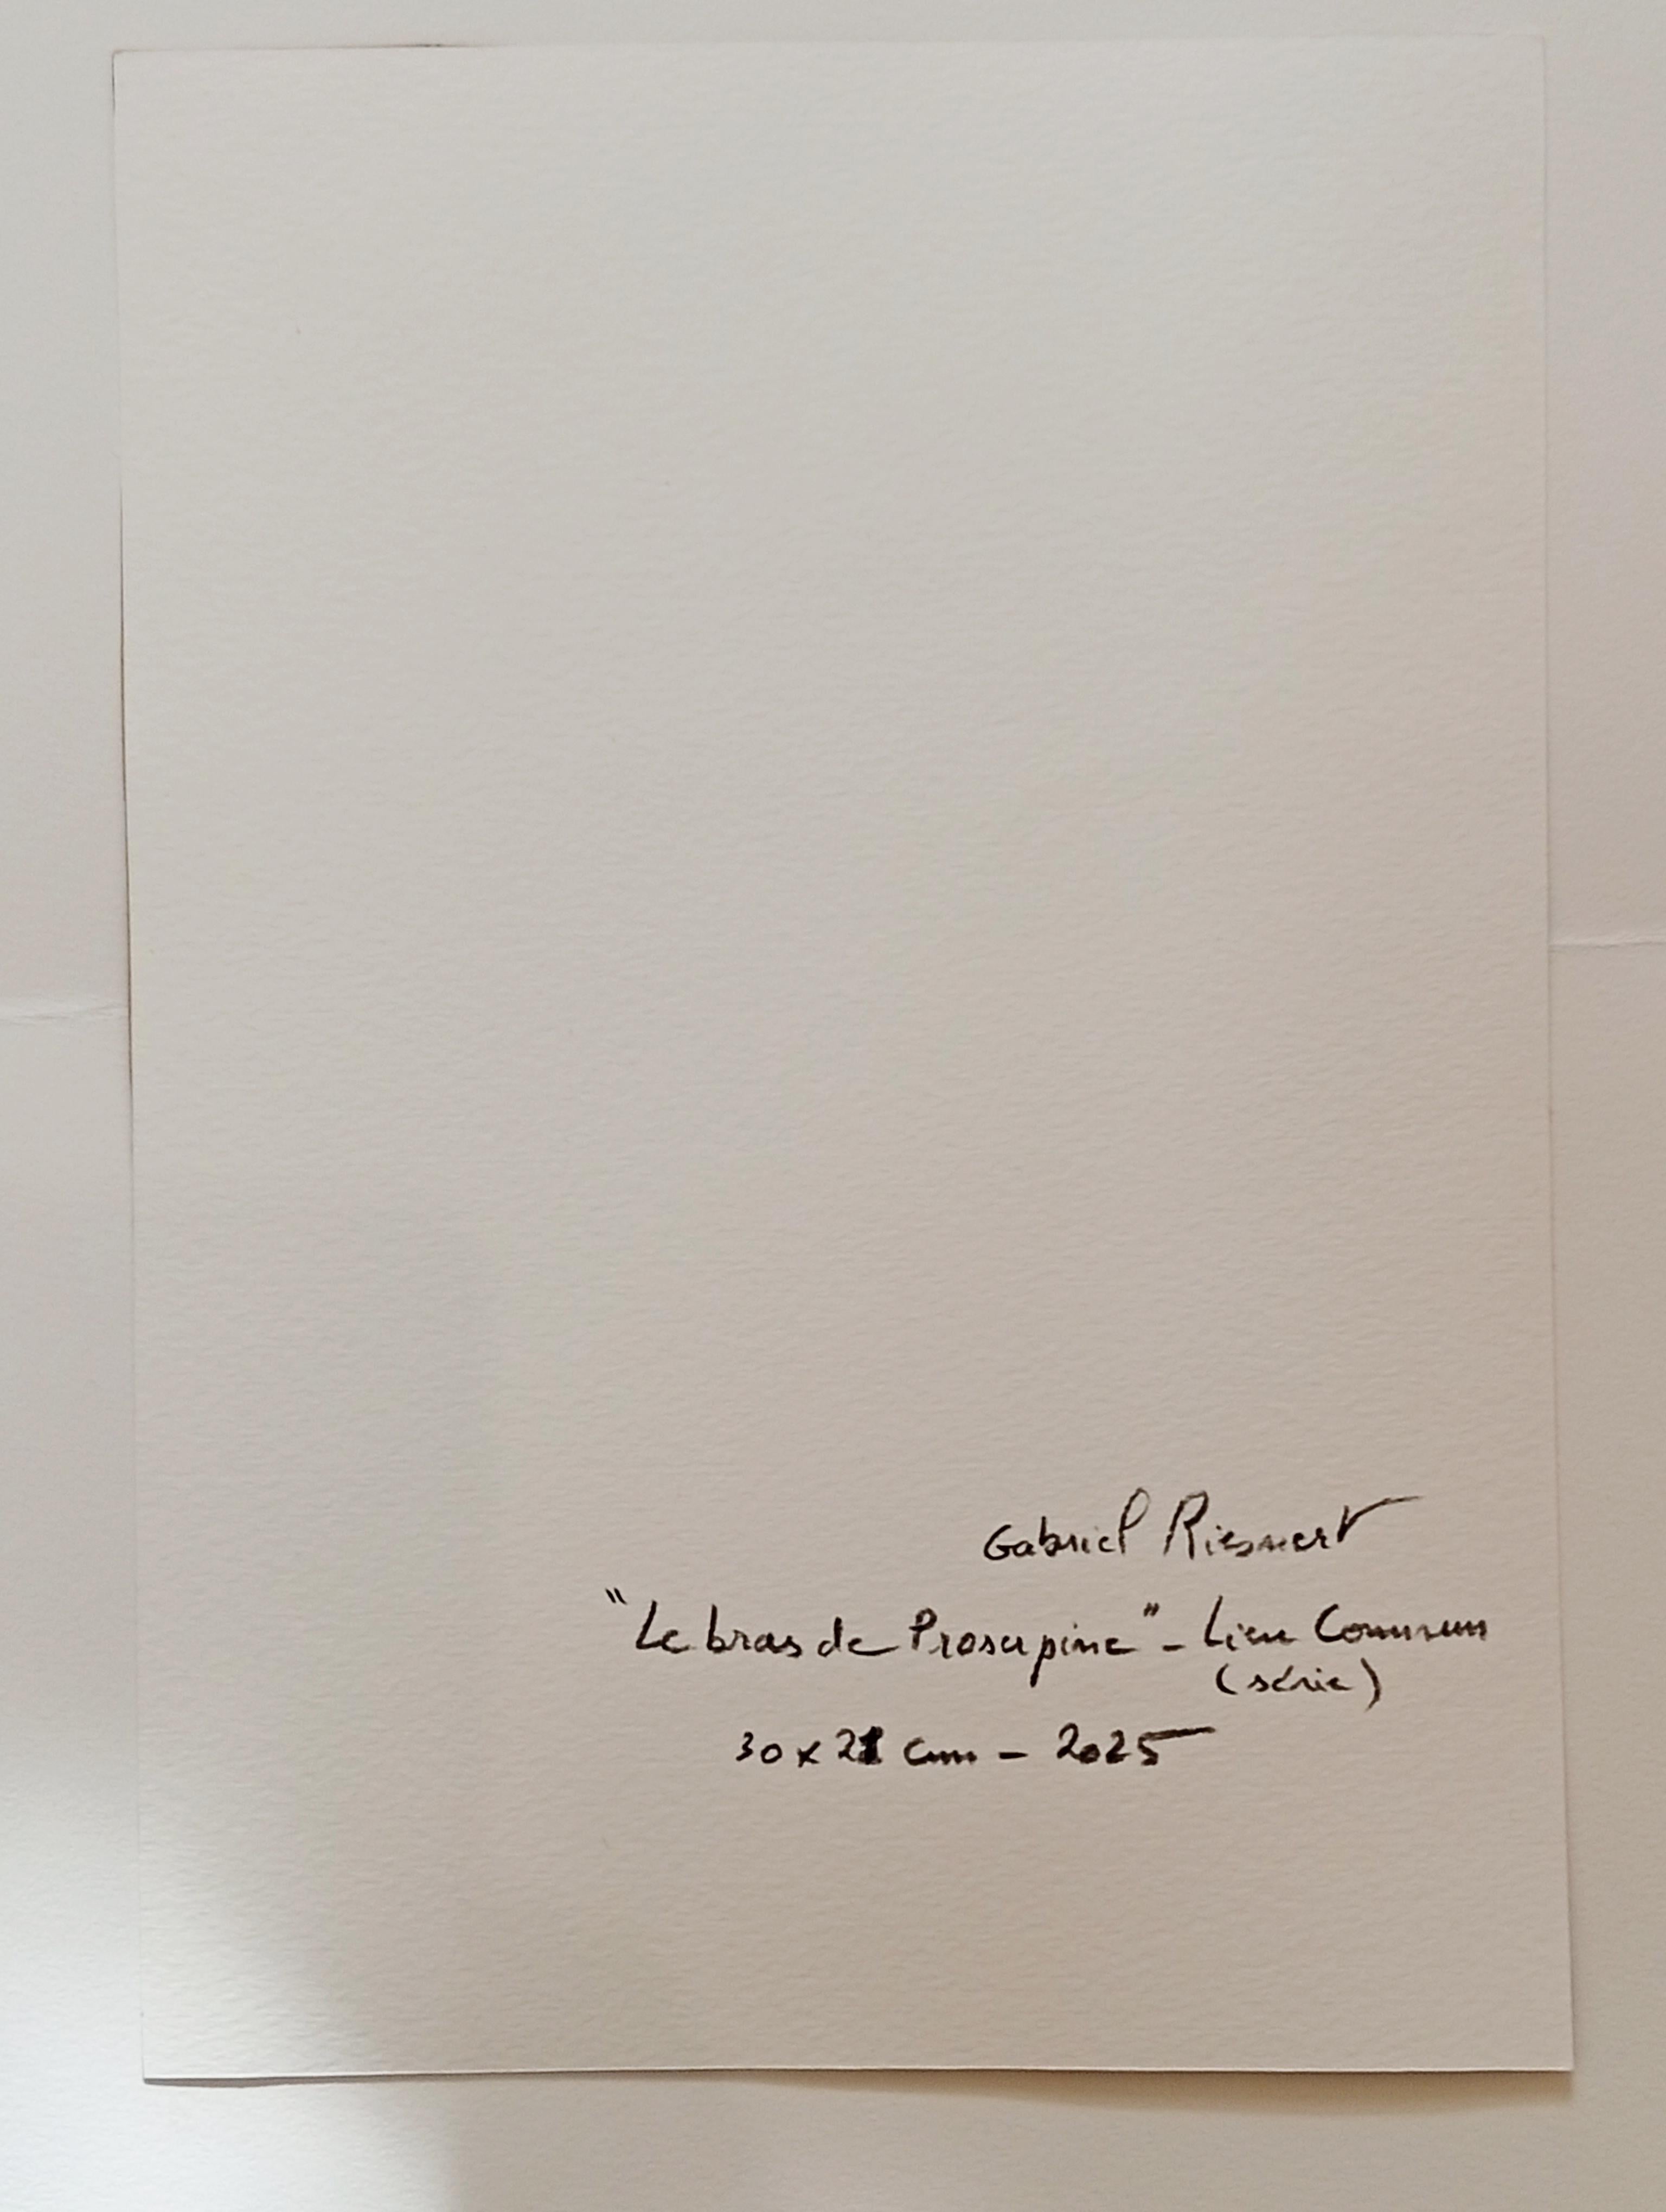 Gabriel Riesnert
"Le bras de Proserpine" - Lieu Commun
(série)
30 x 21 cm - 2025